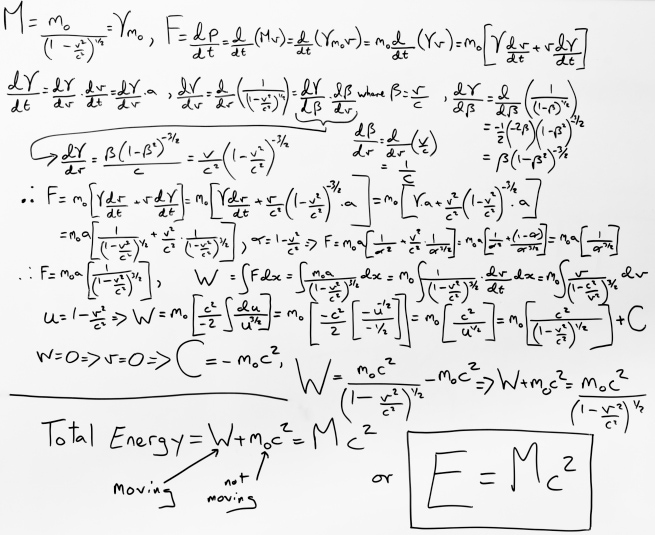 M = m₀/(1 - v²/c²)^½ = γm₀, F = dp/dt = d/dt (Mv) = d/dt (γm₀v) = m₀ d/dt (γv) = m₀[γ dv/dt + v dγ/dt]
dγ/dt = dγ/dv · dv/dt = dγ/dv · a, dγ/dv = d/dv (1/(1-v²/c²)^½) = dγ/dβ · dβ/dv where β = v/c, dγ/dβ = d/dβ (1/(1-β²)^½)
= -1/2 (-2β)(1-β²)^-3/2
= β(1-β²)^-3/2
dβ/dv = d/dv (v/c)
= 1/c
→ dγ/dv = β(1-β²)^-3/2 / c = v/c² (1 - v²/c²)^-3/2
∴ F = m₀[γ dv/dt + v dγ/dt] = m₀[γ dv/dt + v · v/c² (1 - v²/c²)^-3/2 · a] = m₀[γ·a + v²/c² (1 - v²/c²)^-3/2 · a]
= m₀a[1/(1-v²/c²)^½ + v²/c² · 1/(1-v²/c²)^3/2], α = 1 - v²/c² => F = m₀a[1/α^½ + v²/c² · 1/α^3/2] = m₀a[α/α^3/2 + (1-α)/α^3/2] = m₀a[1/α^3/2]
∴ F = m₀a[1/(1-v²/c²)^3/2], W = ∫F dx = ∫ m₀a/(1-v²/c²)^3/2 dx = m₀∫ 1/(1-v²/c²)^3/2 · dv/dt dx = m₀∫ v/(1-v²/c²)^3/2 dv
u = 1 - v²/c² => W = m₀[c²/-2 ∫ du/u^3/2] = m₀[-c²/2 [u^-1/2 / -1/2]] = m₀[c²/u^½] = m₀[c²/(1-v²/c²)^½] + C
W=0 => v=0 => C = -m₀c², W = m₀c²/(1 - v²/c²)^½ - m₀c² => W + m₀c² = m₀c²/(1 - v²/c²)^½
Total Energy = W + m₀c² = Mc²
moving not moving or E = Mc²